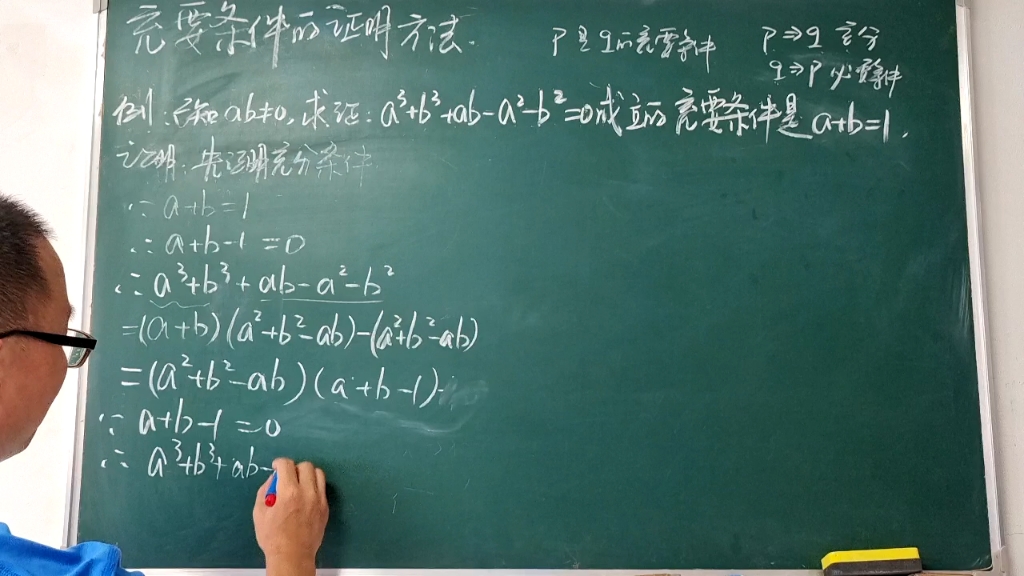 充要条件的证明方法.
P是q的充要条件
P⇒q 充分
q⇒P 必要条件
例:已知ab≠0,求证:a³+b³+ab-a²-b²=0成立的充要条件是a+b=1.
证明:先证明充分条件
∵a+b=1
∴a+b-1=0
∴a³+b³+ab-a²-b²
=(a+b)(a²+b²-ab)-(a²+b²-ab)
=(a²+b²-ab)(a+b-1)
∵a+b-1=0
∴a³+b³+ab-